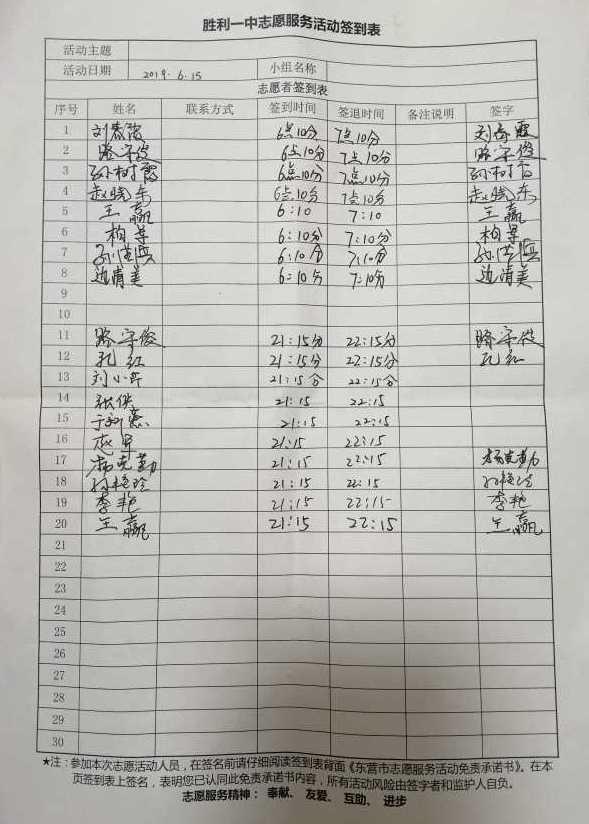 胜利一中志愿服务活动签到表
活动主题
活动日期 2019.6.15 小组名称
志愿者签到表
序号 姓名 联系方式 签到时间 签退时间 备注说明 签字
1 6点10分 7点10分
2 路字俊 6点10分 7点10分 路字俊
3 孙树霞 6点10分 7点10分 孙树霞
4 赵晓东 6点10分 7点10分 赵晓东
5 王赢 6:10 7:10 王赢
6 6:10分 7:10分
7 6:10分 7:10分
8 边清美 6:10分 7:10分 边清美
9
10
11 路字俊 21:15分 22:15分 路字俊
12 孔红 21:15分 22:15分 孔红
13 21:15分 22:15分
14 21:15 22:15
15 21:15 22:15
16 21:15 22:15
17 杨克勤 21:15 22:15 杨克勤
18 21:15 22:15
19 李艳 21:15 22:15 李艳
20 王赢 21:15 22:15 王赢
21
22
23
24
25
26
27
28
29
30
★注：参加本次志愿活动人员，在签名前请仔细阅读签到表背面《东营市志愿服务活动免责承诺书》。在本
页签到表上签名，表明您已认同此免责承诺书内容，所有活动风险由签字者和监护人自负。
志愿服务精神： 奉献、 友爱、 互助、 进步